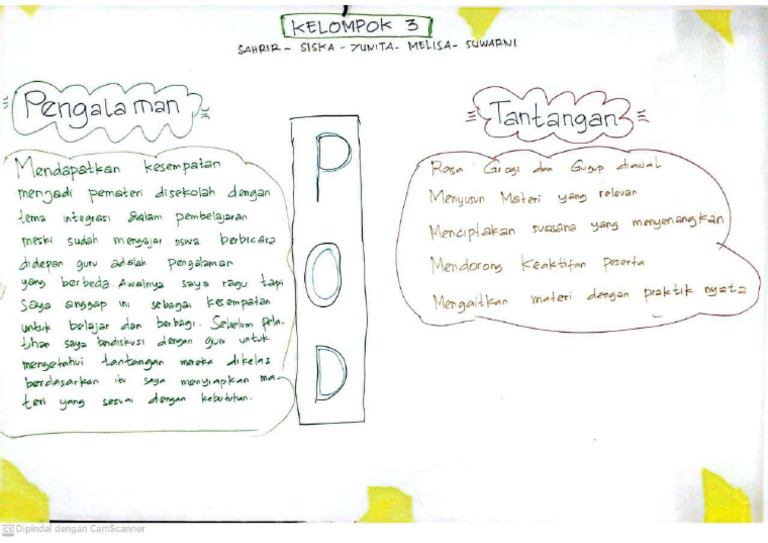 KELOMPOK 3
SAHRIR - SISKA - YUNITA - MELISA - SUWARNI
Pengalaman
Mendapatkan kesempatan
menjadi pemateri disekolah dengan
tema integrasi dalam pembelajaran
meski sudah mengajar siswa berbicara
didepan guru adalah pengalaman
yang berbeda. Awalnya saya ragu tapi
saya anggap ini sebagai kesempatan
untuk belajar dan berbagi. Sebelum pela-
tihan saya berdiskusi dengan guru untuk
mengetahui tantangan mereka dikelas
berdasarkan itu saya menyiapkan ma-
teri yang sesuai dengan kebutuhan.
P
O
D
Tantangan
Rasa Grogi dan Gugup diawal
Menyusun Materi yang relevan
Menciptakan suasana yang menyenangkan
Mendorong Keaktifan peserta
Mengaitkan materi dengan praktik nyata
CS Dipindai dengan CamScanner